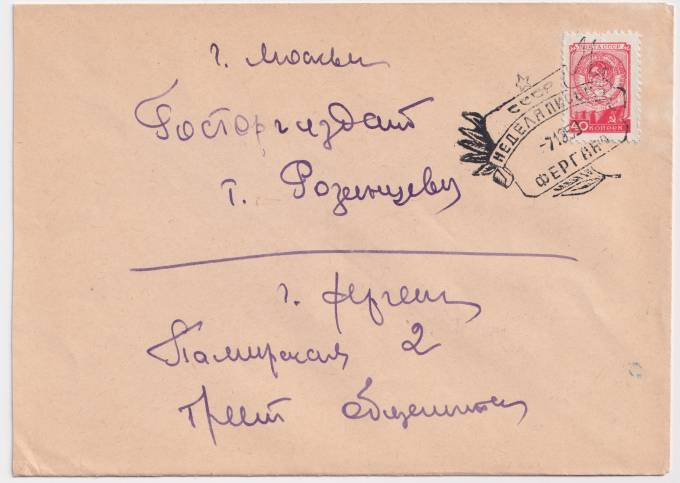 г. Москва
Госторгиздат
т. Розенцвету
г. Фергана
Памирская 2
трест
ПОЧТА СССР
40 КОПЕЕК
СССР
НЕДЕЛЯ ПИСЬМА
ФЕРГАНА